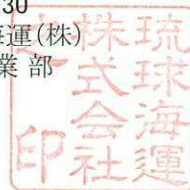 30
海運(株)
業部
琉球海運
株式会社
之印